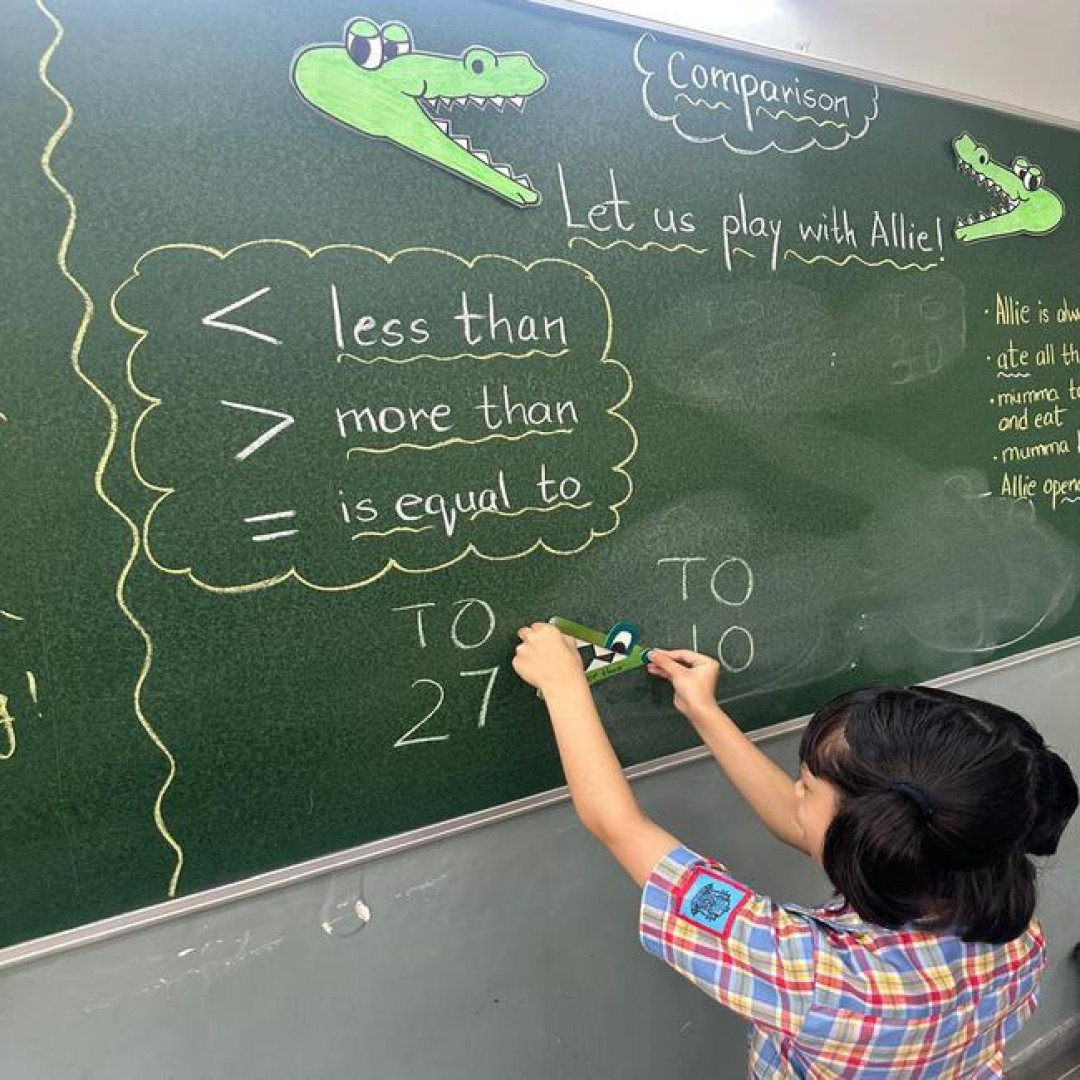 Comparison
Let us play with Allie!
< less than
> more than
= is equal to
TO
27
TO
10
· Allie is
· ate all
· mumma
and eat
· mumma
Allie